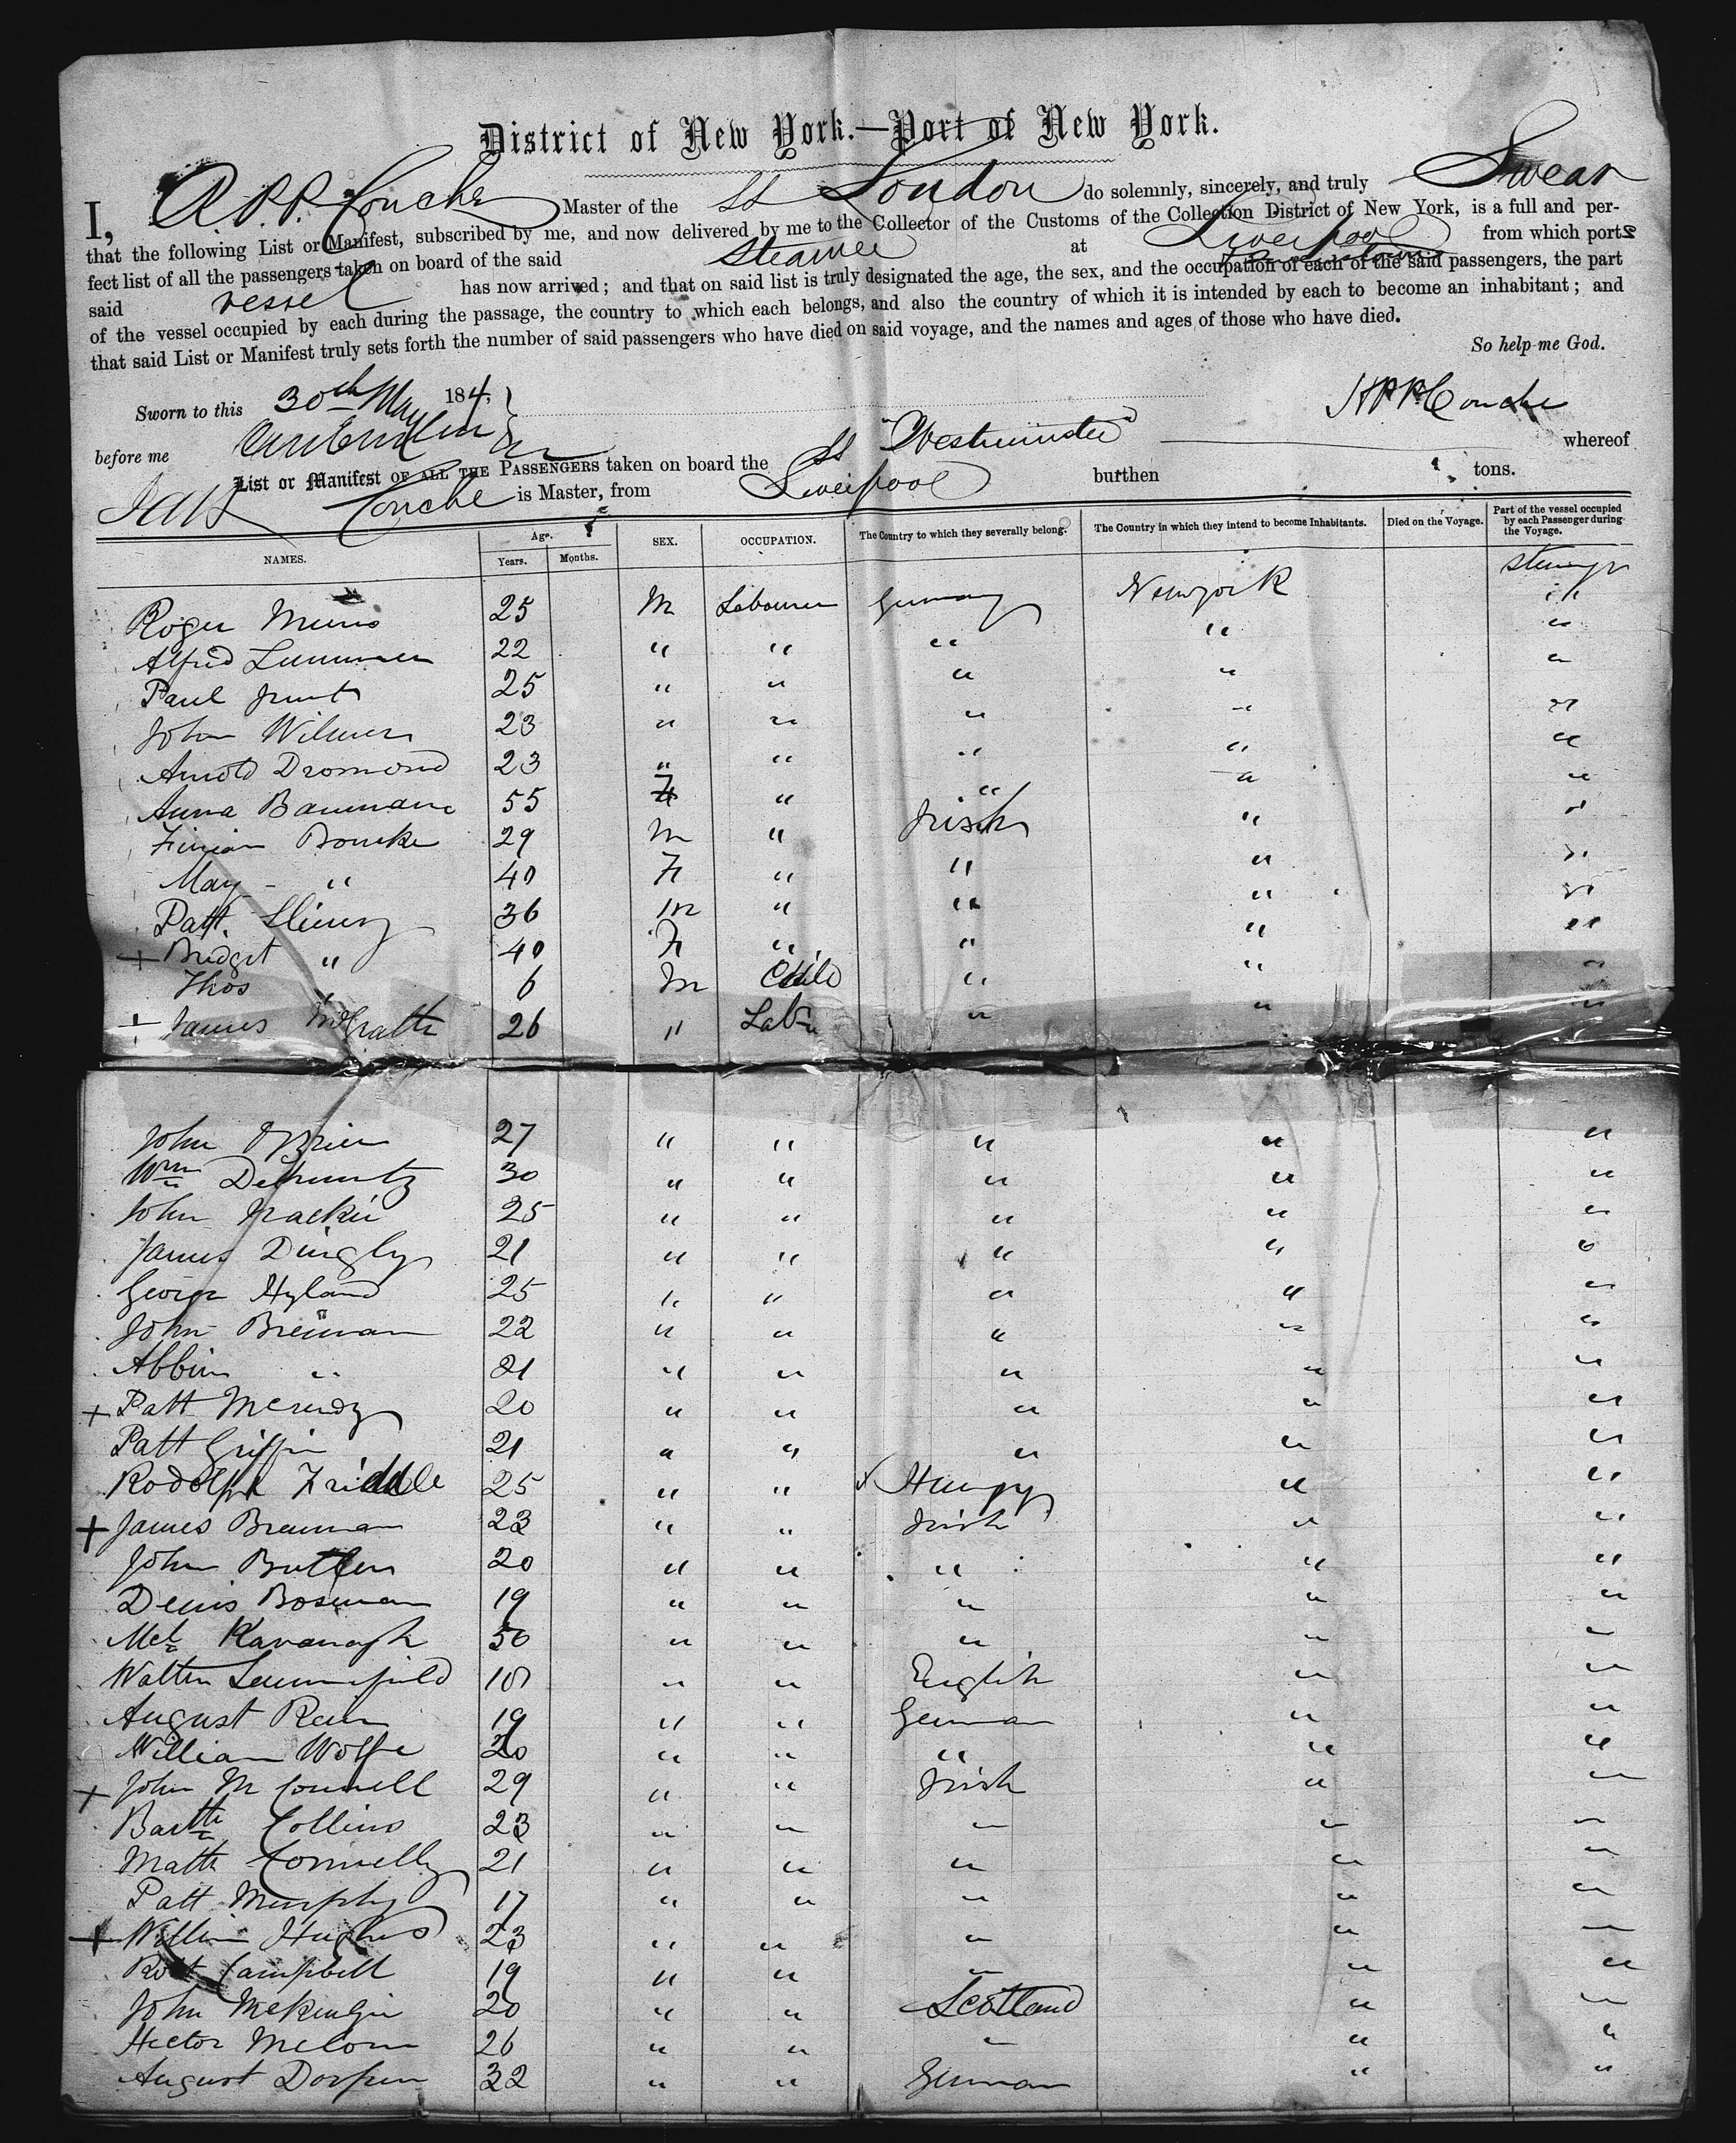 District of New York.—Port of New York.
I, Couche Master of the SS London do solemnly, sincerely, and truly Swear
that the following List or Manifest, subscribed by me, and now delivered by me to the Collector of the Customs of the Collection District of New York, is a full and per-
fect list of all the passengers taken on board of the said Steamer at Liverpool from which ports
said vessel has now arrived; and that on said list is truly designated the age, the sex, and the occupation of each of the said passengers, the part
of the vessel occupied by each during the passage, the country to which each belongs, and also the country of which it is intended by each to become an inhabitant; and
that said List or Manifest truly sets forth the number of said passengers who have died on said voyage, and the names and ages of those who have died.
So help me God.
Sworn to this 30th May 184
Couche
before me
List or Manifest OF ALL THE PASSENGERS taken on board the SS "Westminster" whereof
Couche is Master, from Liverpool burthen tons.
NAMES. Age. Years. Months. SEX. OCCUPATION. The Country to which they severally belong. The Country in which they intend to become Inhabitants. Died on the Voyage. Part of the vessel occupied by each Passenger during the Voyage.
Roger 25 M Labourer Germany Newyork
Alfred 22 " " " " "
Paul 25 " " " " "
John Wilmer 23 " " " " "
Arnold Dromond 23 " " " " "
Anna Baumann 55 F " " " "
Bourke 29 M " Irish " "
Mary " 40 F " " " "
Patt. 36 M " " " "
+ Bridget " 40 F " " " "
Thos " 6 M Child " " "
+ James McGrath 26 " Labr " " "
John O'Brien 27 " " " " "
Wm 30 " " " " "
John Mackie 25 " " " " "
James Dingly 21 " " " " "
George Hyland 25 " " " " "
John Brennan 22 " " " " "
" 21 " " " " "
+ Patt 20 " " " " "
Patt Griffin 21 " " " " "
Rodolph Friddle 25 " " Hungy " "
+ James Brennan 23 " " Irish " "
John Butler 20 " " " " "
Denis Bosman 19 " " " " "
Mcl Kavanagh 50 " " " " "
Walter 18 " " English " "
August 19 " " German " "
William Wolfe 20 " " " " "
+ John McConnell 29 " " Irish " "
Barth Collins 23 " " " " "
Matth Connelly 21 " " " " "
Patt Murphy 17 " " " " "
+ William Hughes 23 " " " " "
Robt Campbell 19 " " " " "
John McKenzie 20 " " Scotland " "
Hector 26 " " " " "
August 32 " " German " "